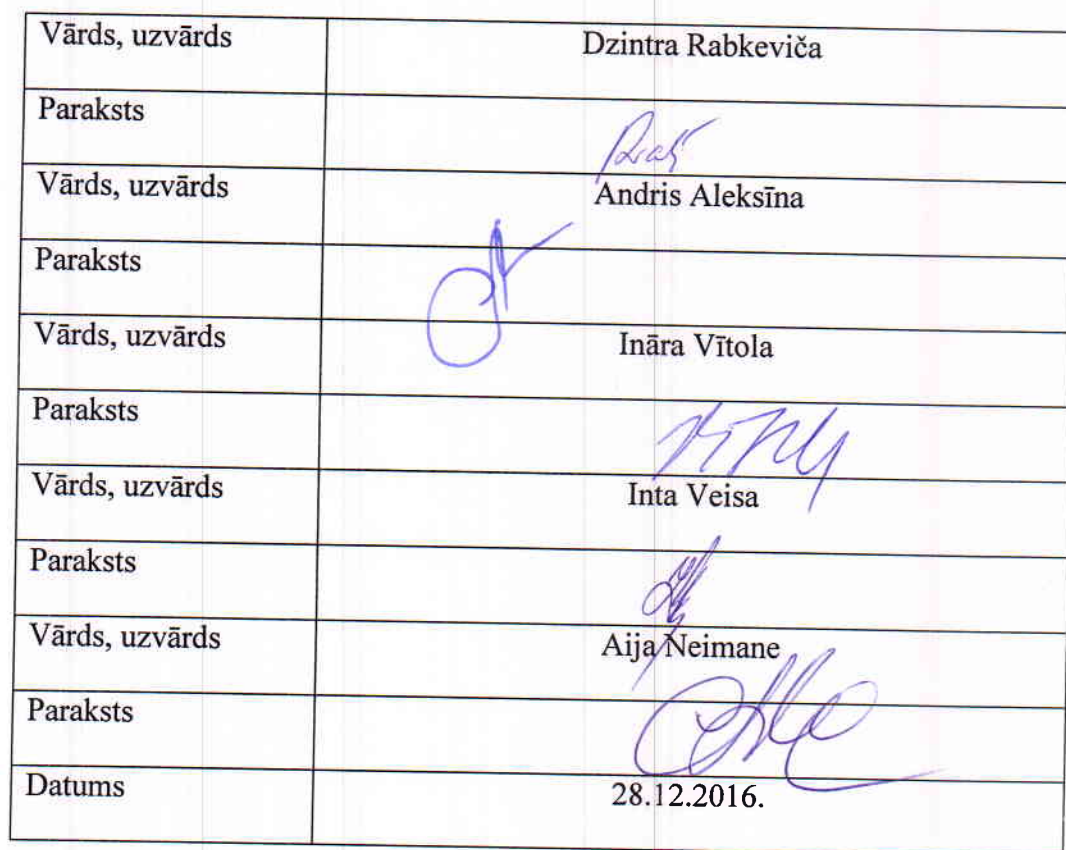 Vārds, uzvārds Dzintra Rabkeviča
Paraksts
Vārds, uzvārds Andris Aleksīna
Paraksts
Vārds, uzvārds Ināra Vītola
Paraksts
Vārds, uzvārds Inta Veisa
Paraksts
Vārds, uzvārds Aija Neimane
Paraksts
Datums 28.12.2016.